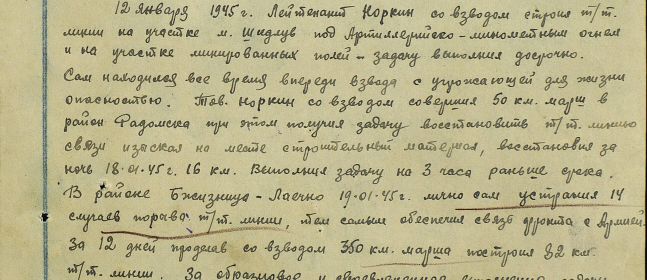 12 января 1945 г. Лейтенант Норкин со взводом строя т/т.
линии на участке м. Шидлув под Артиллерийско-минометным огнем
и на участке минированных полей - задачу выполнил досрочно.
Сам находился все время впереди взвода с угрожающей для жизни
опасностью. Тов. Норкин со взводом совершил 50 км. марш в
район Радомска при этом получил задачу восстановить т/т. линию
связи изыскал на месте строительный материал, восстановил за
ночь 18.01.45г. 16 км. Выполнил задачу на 3 часа раньше срока.
В районе Бжизница - Лаечно 19.01.45г. лично сам устранил 14
случаев порыва т/т. линии, тем самым обеспечил связь фронта с Армией.
За 12 дней проделав со взводом 350 км. марша построил 82 км.
т/т. линии. За образцовое и своевременное выполнение задачи